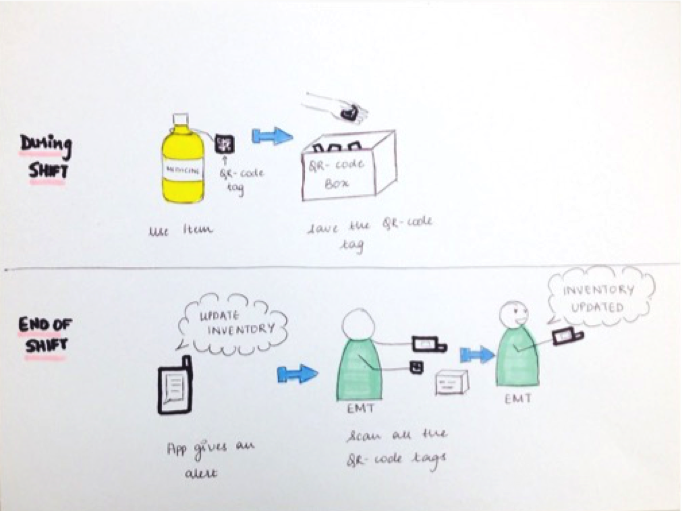 DURING
SHIFT
MEDICINE
QR-code
tag
use Item
QR-code
Box
save the QR-code
tag
END OF
SHIFT
UPDATE
INVENTORY
App gives an
alert
EMT
scan all the
QR-code tags
INVENTORY
UPDATED
EMT